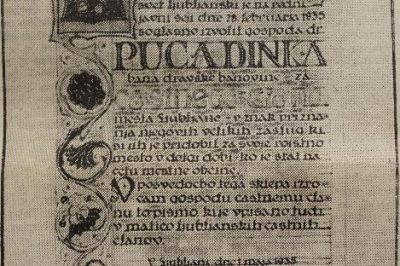 svet ljubljanski je na redni
javni seji dne 28. februarja 1935
soglasno izvolil gospoda dr.
PUCA DINKA
bana dravske banovine za
mesta Ljubljane v znak prizna
nja njegovih velikih zaslug ki
si jih je pridobil za svoje rojstno
mesto v dolgi dobi, ko je stal na
čelu mestne občine.
V posvedočbo tega sklepa izro
čam gospodu častnemu čla
nu to pismo, ki je vpisano tudi
v matico ljubljanskih častnih
članov.
V Ljubljani, dne 1. maja 1935